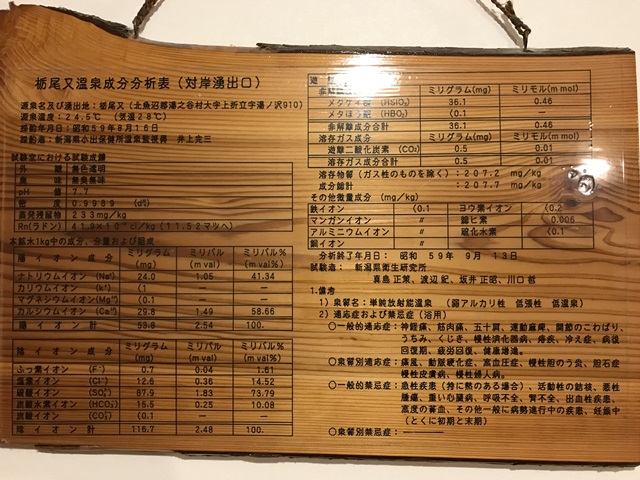 栃尾又温泉成分分析表（対岸湧出口）
源泉名及び湧出地：栃尾又（北魚沼郡湯之谷村大字上折立字湯ノ沢910）
源泉温度：24.5℃ （気温28℃）
採酌年月日：昭和59年8月16日
採酌者：新潟県小出保健所温泉監視員 井上完三
試験室における試験成績
外観 無色透明
臭 無臭無味
pH値 7.7
密度 0.9989 (g/l)
蒸発残留物 233mg/kg
Rn(ラドン) 41.9×10⁻¹⁰ci/kg (11.52マッヘ)
本鉱水1kg中の成分、分量および組成
陽イオン成分 ミリグラム(mg) ミリバル(m val) ミリバル%(m val%)
ナトリウムイオン(Na⁺) 24.0 1.05 41.34
カリウムイオン(K⁺) 〈1
マグネシウムイオン(Mg²⁺) 〈0.1
カルシウムイオン(Ca²⁺) 29.8 1.49 58.66
陽イオン計 53.8 2.54 100.
陰イオン成分 ミリグラム(mg) ミリバル(m val) ミリバル%(m val%)
ふっ素イオン(F⁻) 0.7 0.04 1.61
塩素イオン(Cl⁻) 12.6 0.36 14.52
硫酸イオン(SO₄²⁻) 87.9 1.83 73.79
炭酸水素イオン(HCO₃⁻) 15.5 0.25 10.08
炭酸イオン(CO₃²⁻) 〈0.1 ―
陰イオン計 116.7 2.48 100.
遊
非解離 ミリグラム(mg) ミリモル(m mol)
メタケイ酸 (H₂SiO₃) 36.1 0.46
メタほう酸 (HBO₂) 〈0.1 ―
非解離成分合計 36.1 0.46
溶存ガス成分 ミリグラム(mg) ミリモル(m mol)
遊離二酸化炭素 (CO₂) 0.5 0.01
溶存ガス成分合計 0.5 0.01
溶存物質（ガス性のものを除く）：207.2 mg/kg
成分総計 ：207.7 mg/kg
その他微量成分 (mg/kg)
鉄イオン 〈0.1 ヨウ素イオン 〈0.2
マンガンイオン 〃 総ヒ素 0.006
アルミニウムイオン 〃 硫化水素 〈0.1
銅イオン 〃
分析終了年月日：昭和 59年 9月 13日
試験者： 新潟県衛生研究所
真島正策、渡辺紀、坂井正昭、川口哲
1.備考
1) 泉質名：単純放射能温泉 （弱アルカリ性 低張性 低温泉）
2) 適応症および禁忌症（浴用）
○一般的適応症：神経痛、筋肉痛、五十肩、運動麻痺、関節のこわばり、
うちみ、くじき、慢性消化器病、痔疾、冷え症、病後
回復期、疲労回復、健康増進。
○泉質別適応症：痛風、動脈硬化症、高血圧症、慢性胆のう炎、胆石症
慢性皮膚病、慢性婦人病。
○一般的禁忌症：急性疾患（特に熱のある場合）、活動性の結核、悪性
腫瘍、重い心臓病、呼吸不全、腎不全、出血性疾患、
高度の貧血、その他一般に病勢進行中の疾患、妊娠中
（とくに初期と末期）
○泉質別禁忌症：―――